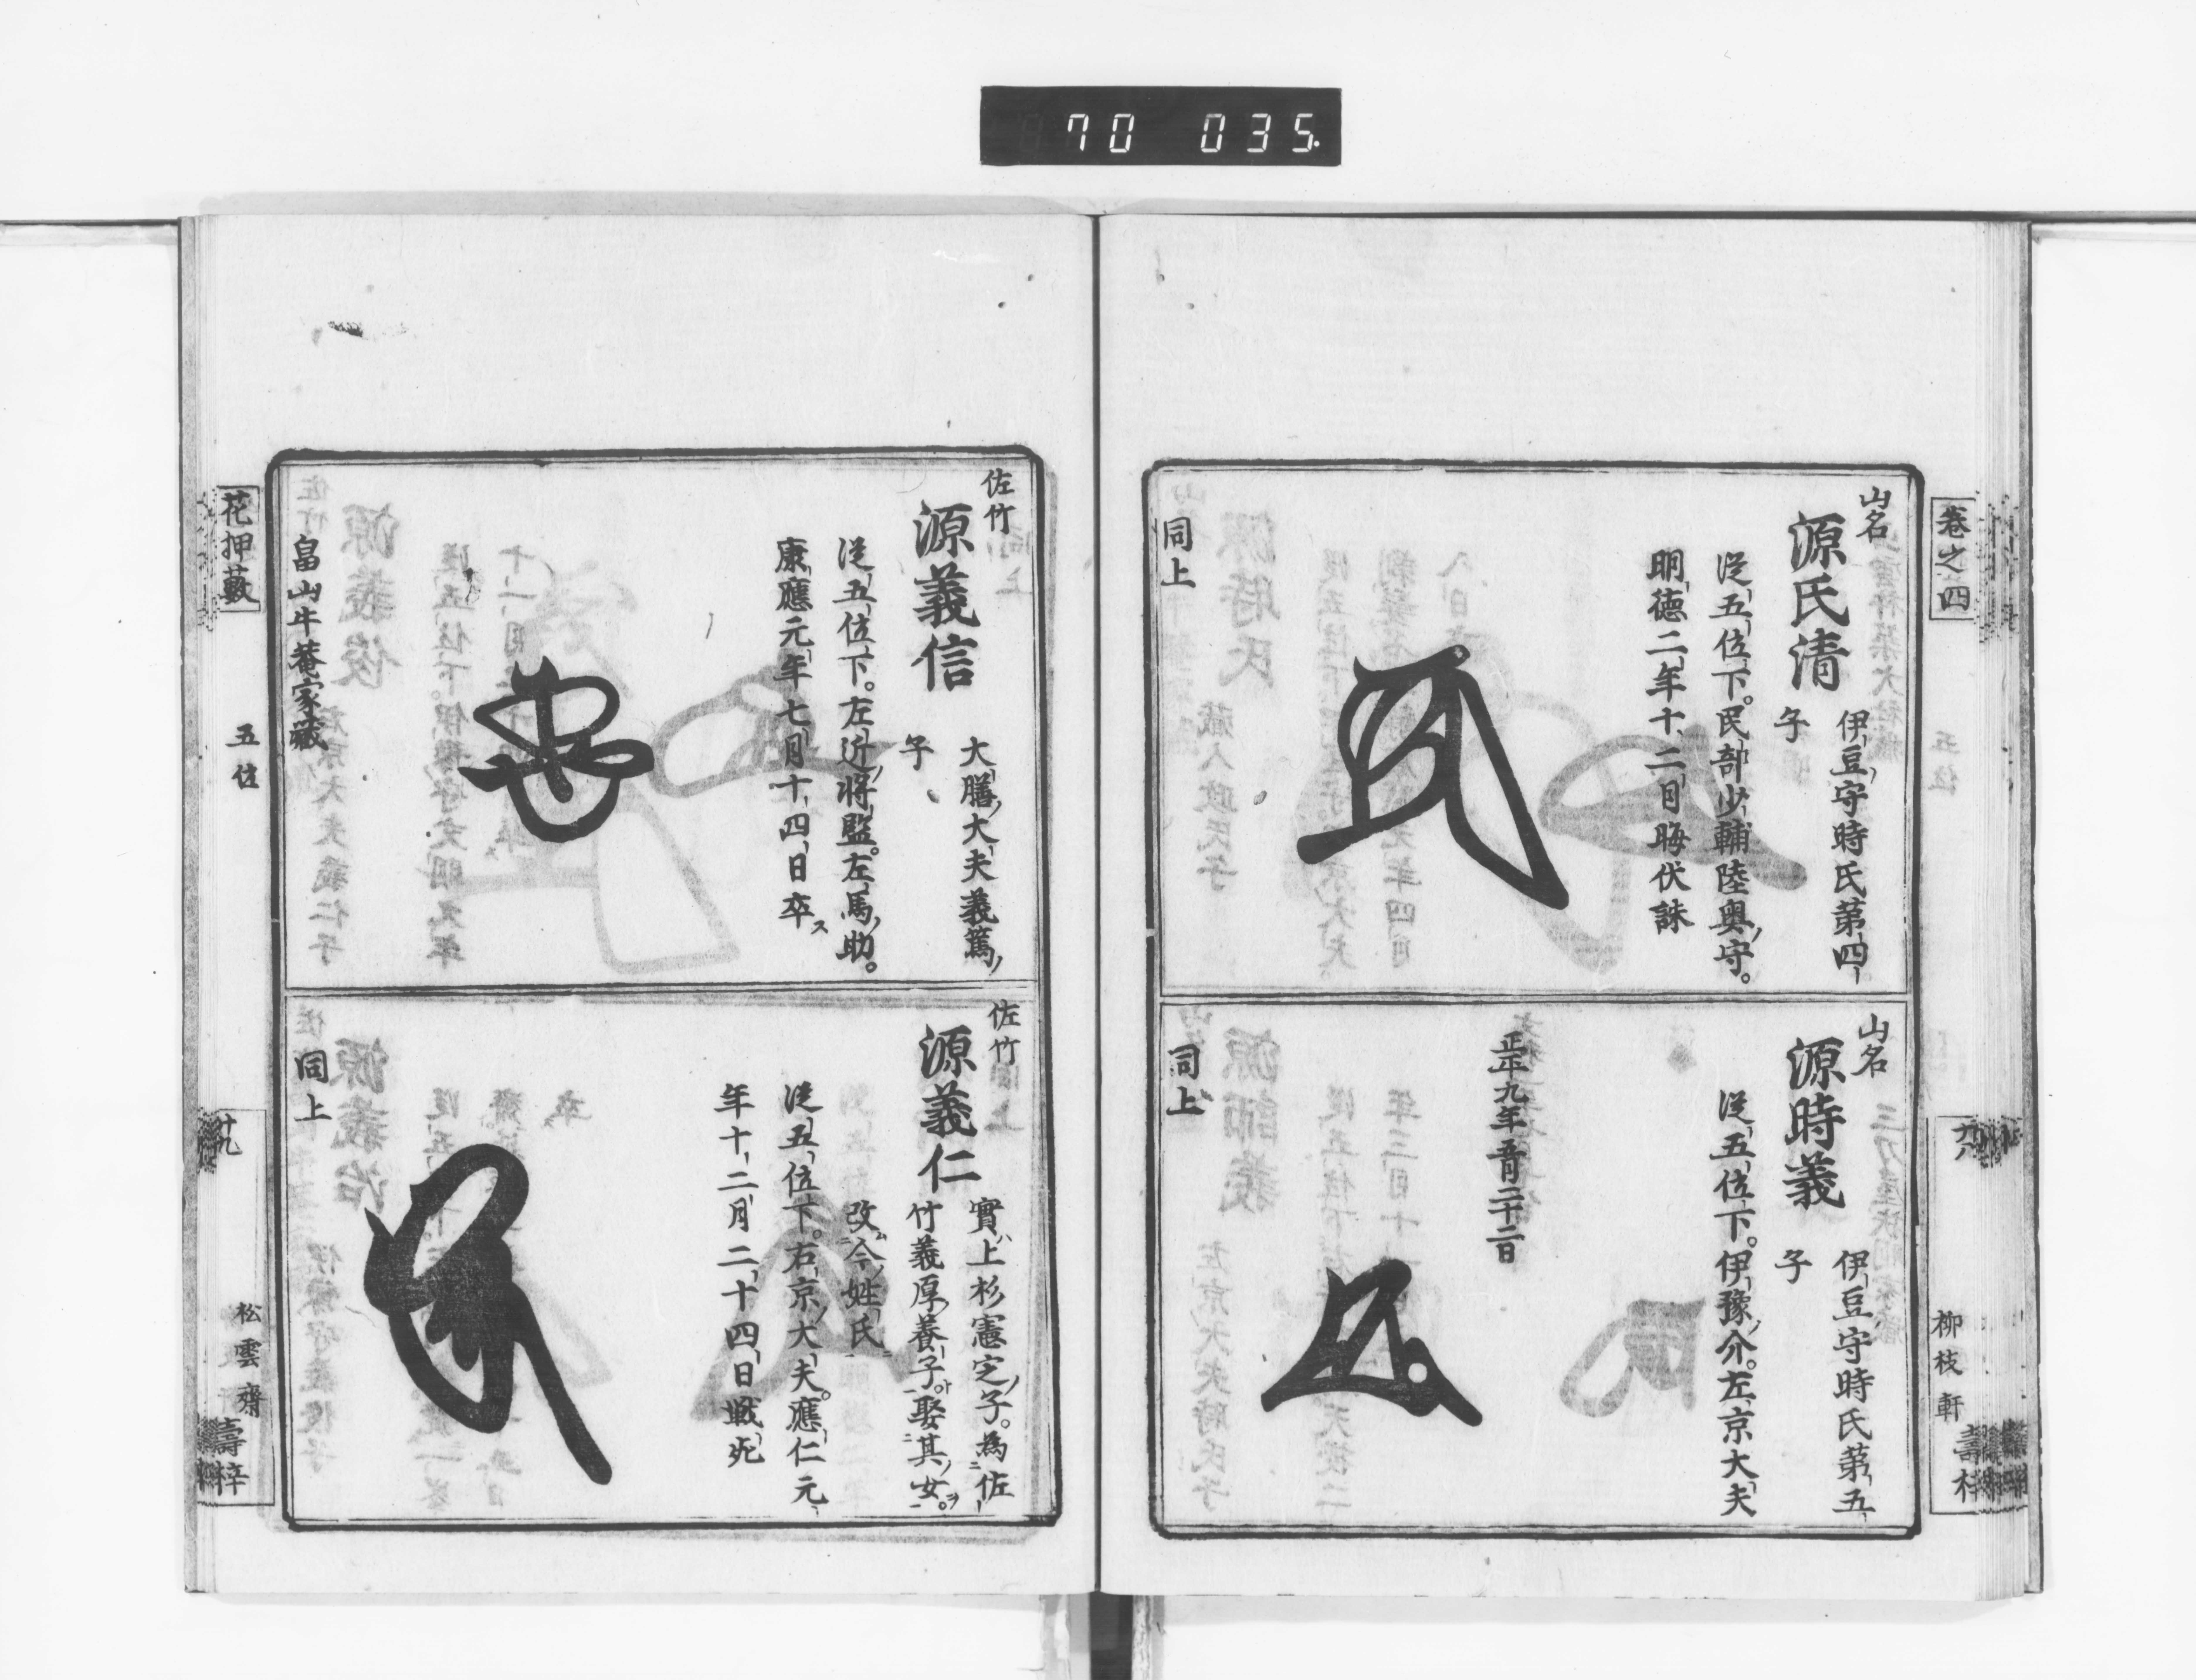 70 035.
卷之四
柳枝軒
山名
源氏清
伊豆守時氏第四
子
從五位下。民部少輔陸奥守。
明德二年十二月晦伏誅
同上
山名
源時義
伊豆守時氏第五
子
從五位下。伊豫介。左京大夫
正平九年五月二十二日
同上
佐竹
源義信
大膳大夫義篤
子
從五位下。左近將監。左馬助。
康應元年七月十四日卒ス
畠山牛菴家藏
佐竹
源義仁
實ハ上杉憲定ノ子。為佐
竹義厚養子。娶其女。
改今姓氏
從五位下。右京大夫。應仁元
年十二月二十四日戰死
同上
花押藪
五位
十九
松雲齋
壽梓